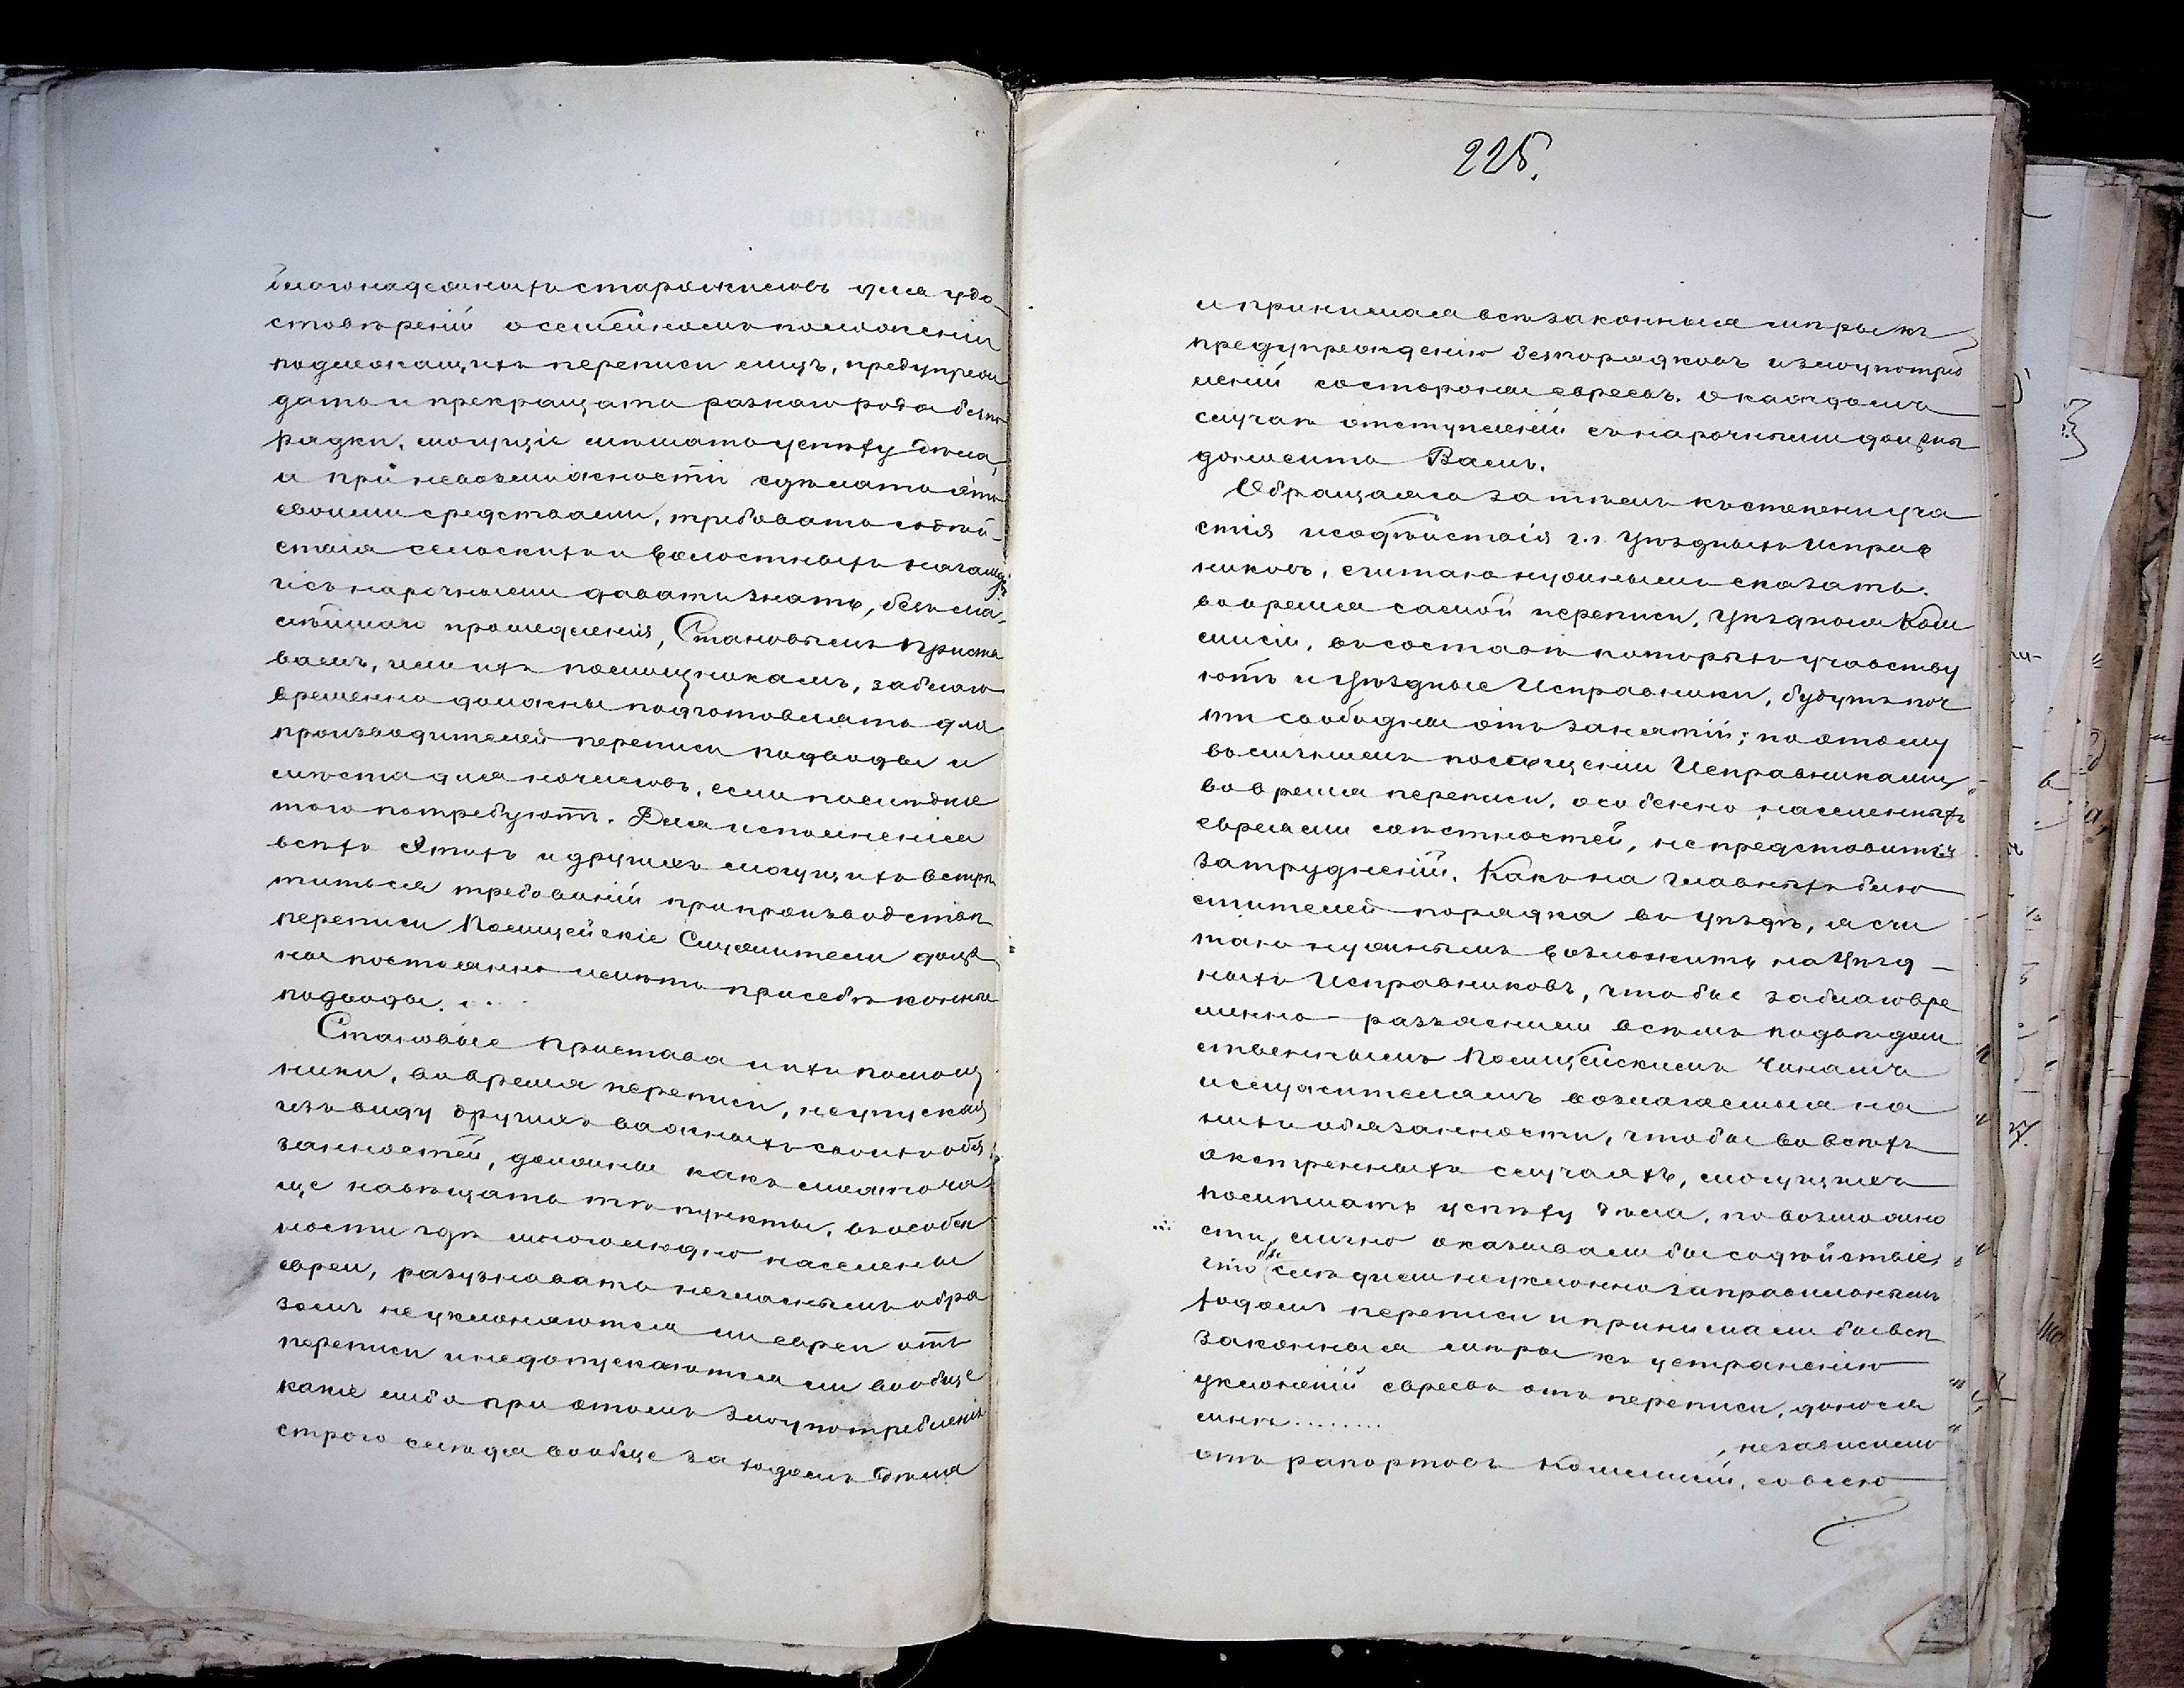 благонадежныхъ старожиловъ для удо-
стовѣреній о семейномъ положеніи
подлежащихъ переписи лицъ, предупреж
дать и прекращать разнаго рода безпо-
рядки, могущіе мѣшать успѣху дѣла,
и при невозможности сдѣлать это
своими средствами, требовать содѣй-
ствія сельскихъ и волостныхъ началь
и съ нарочными давать знать, безъ ма-
лѣйшаго промедленія, Становымъ Приста
вамъ, или ихъ помощникамъ, заблаго
временно должны подготовлять для
производителей переписи подводы и
мѣста для ночлеговъ, если послѣдніе
того потребуютъ. Для исполненія
всѣхъ этихъ и другихъ могущихъ встрѣ
титься требованій при производствѣ
переписи Полицейскіе Служители долж
ны постоянно имѣть при себѣ конныя
подводы. ...
Становые Пристава и ихъ помощ
ники, во время переписи, не упуская
изъ виду другихъ важныхъ своихъ обя
занностей, должны какъ можно ча
ще навѣщать тѣ пункты, въ особен
ности гдѣ многолюдно населены
евреи, разузнавать негласнымъ обра
зомъ не уклоняются ли евреи отъ
переписи и недопускаются ли вообще
какіе либо при этомъ злоупотребленія
строго слѣдя вообще за ходомъ дѣла
225.
и принимая всѣ законныя мѣры къ
предупрежденію безпорядковъ и злоупотреб
леній со стороны евреевъ. О каждомъ
случаѣ отступленій съ нарочными должны
доносить Вамъ.
Обращаясь за тѣмъ къ степени уча
стія и содѣйствія г.г. Уѣздныхъ Исправ
никовъ, считаю нужнымъ сказать.
во время самой переписи, Уѣздныя Ком
мисіи, въ составѣ которыхъ участву
ютъ и Уѣздные Исправники, будутъ поч
ти свободны отъ занятій; поэтому
во личномъ посѣщеніи Исправниками
во время переписи, особенно населенныхъ
евреями мѣстностей, не представится
затрудненій. Какъ на главныхъ блю
стителей порядка въ уѣздѣ, я счи
таю нужнымъ возложить на Уѣзд-
ныхъ Исправниковъ, чтобы заблаговре
менно - разъяснили всѣмъ подвѣдом
ственнымъ Полицейскимъ Чинамъ
и служителямъ возлагаемыя на
нихъ обязанности, чтобы во всѣхъ
экстренныхъ случаяхъ, могущихъ
помѣшать успѣху дѣла, по возможно
сти, лично оказывали бы содѣйствіе,
что бы слѣдили неуклонно за правильнымъ
ходомъ переписи и принимали бы всѣ
законныя мѣры къ устраненію
уклоненій евреевъ отъ переписи, донося
мнѣ ........
, независимо
отъ рапортовъ Коммисій, со всею